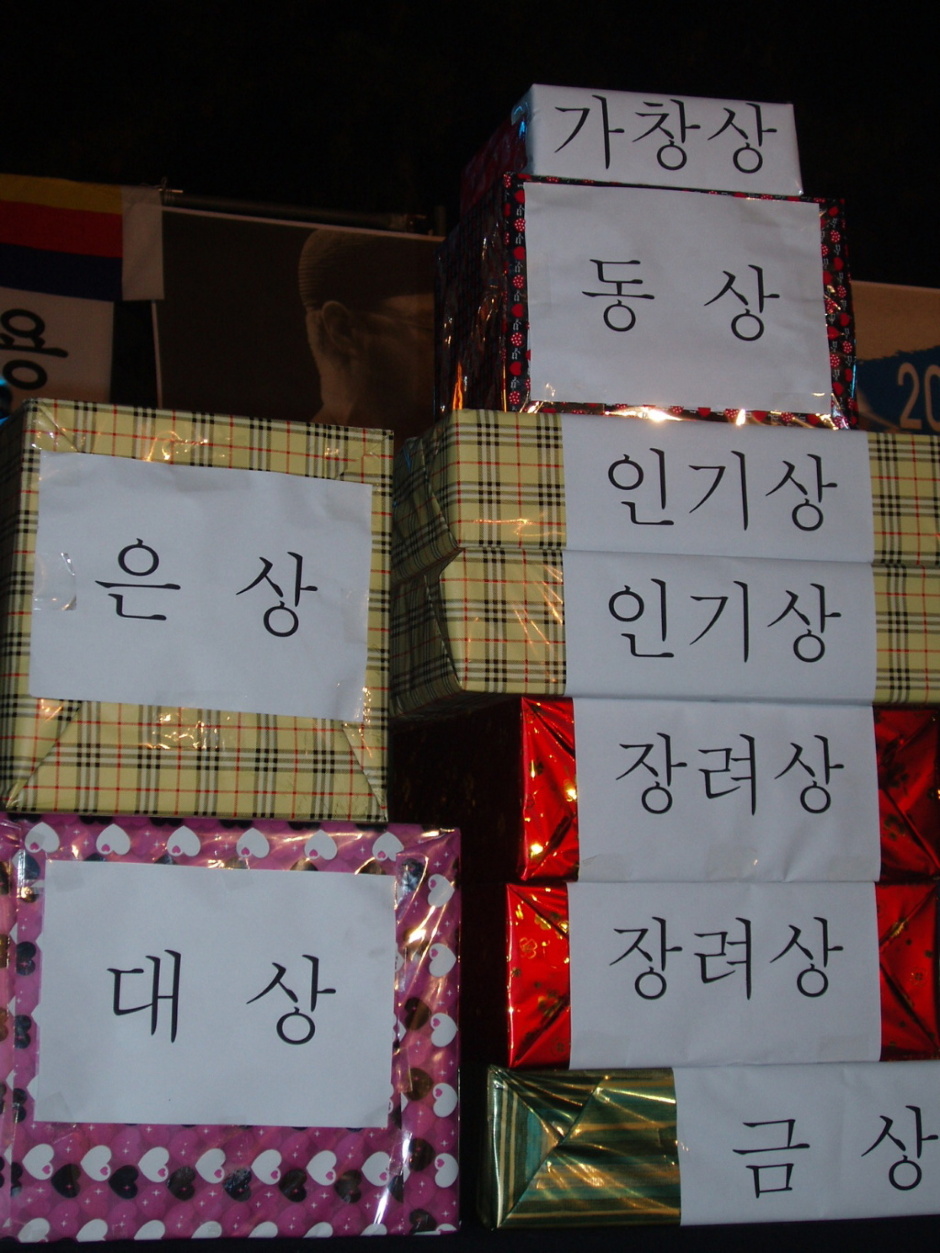 가창상
동 상
인기상
인기상
장려상
장려상
금 상
은 상
대 상
20